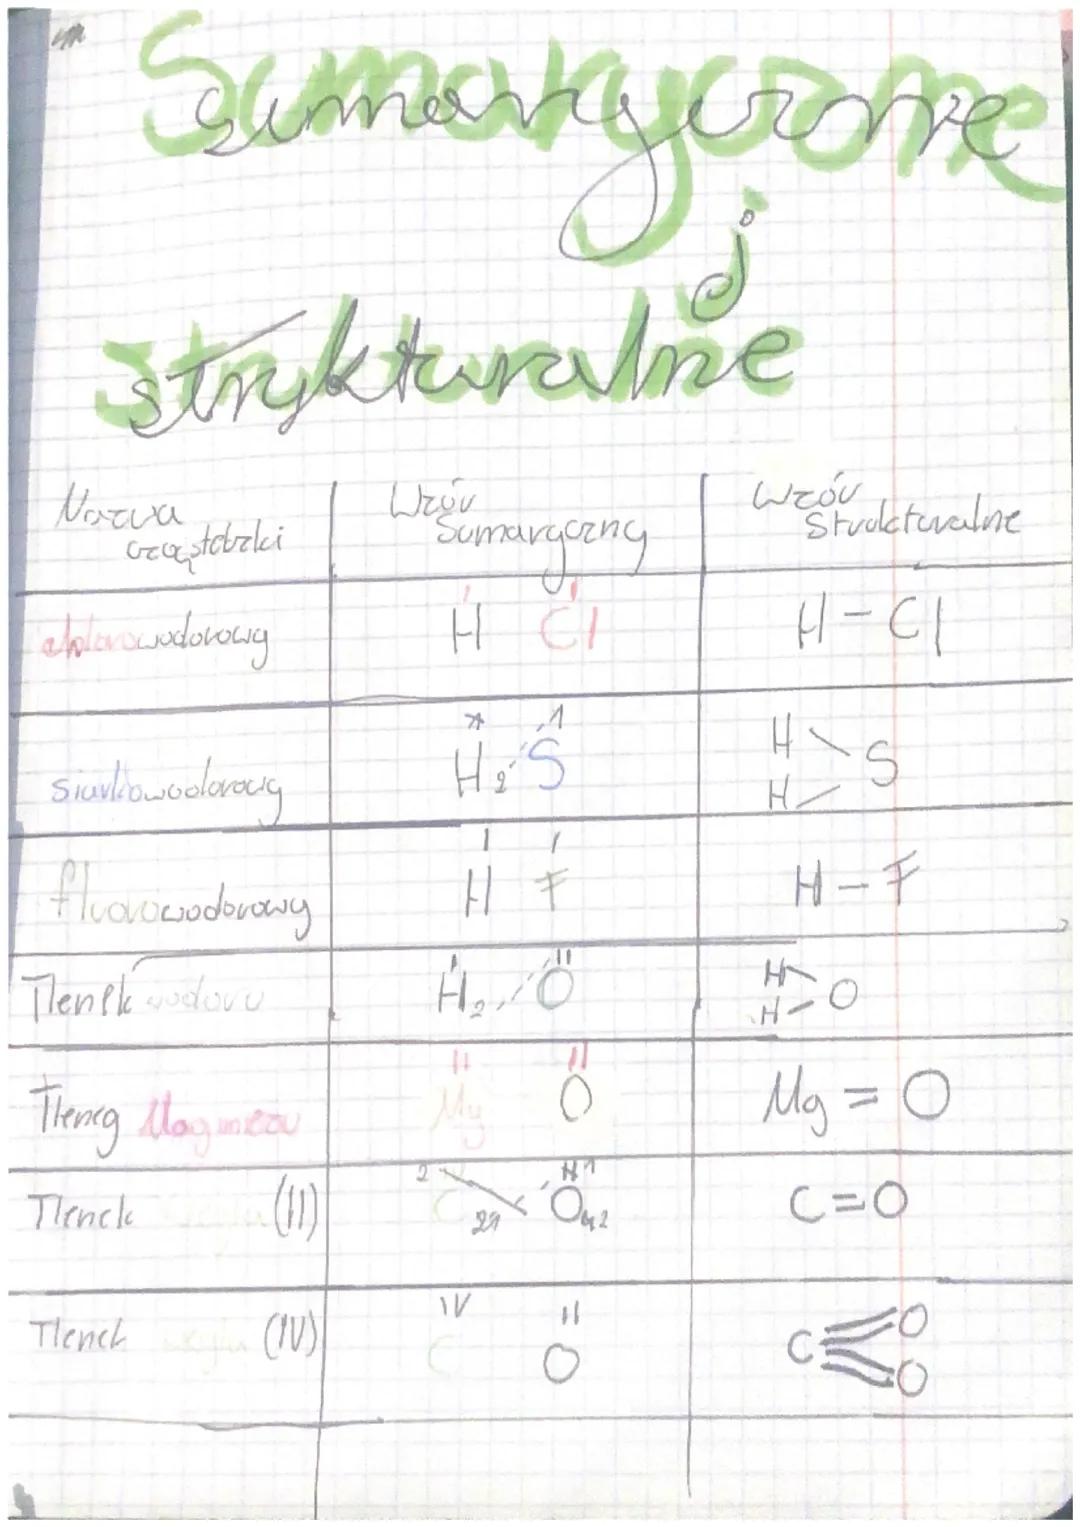 Sumaryczne
i
strukturalne
Nazwa cząsteczki
Wzór Sumaryczny
Wzór Strukturalne
chlorowodorowy
H Cl
H - Cl
siarkowodorowy
H₂ S
H
S
H
fluorowodorowy
H F
H - F
Tlenek wodoru
H₂ O
H
O
H
Tleneg Magnezu
Mg O
Mg = O
Tlenek węglu (II)
C O
C = O
Tlenek węglu (IV)
IV II
C O
C
O
O